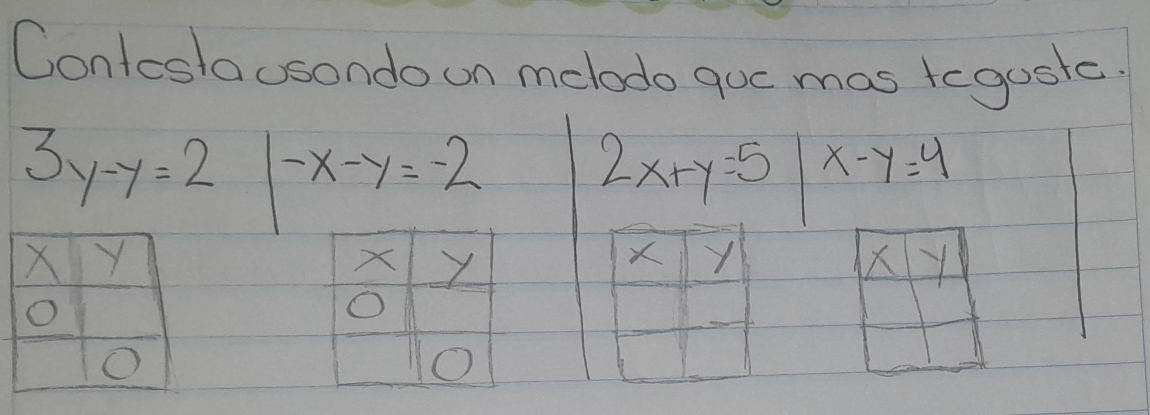 Contesta usando un metodo que mas te guste.
3y-y=2 | -x-y=-2 | 2x+y=5 | x-y=4
X Y X Y X Y X Y
0 0
0 0